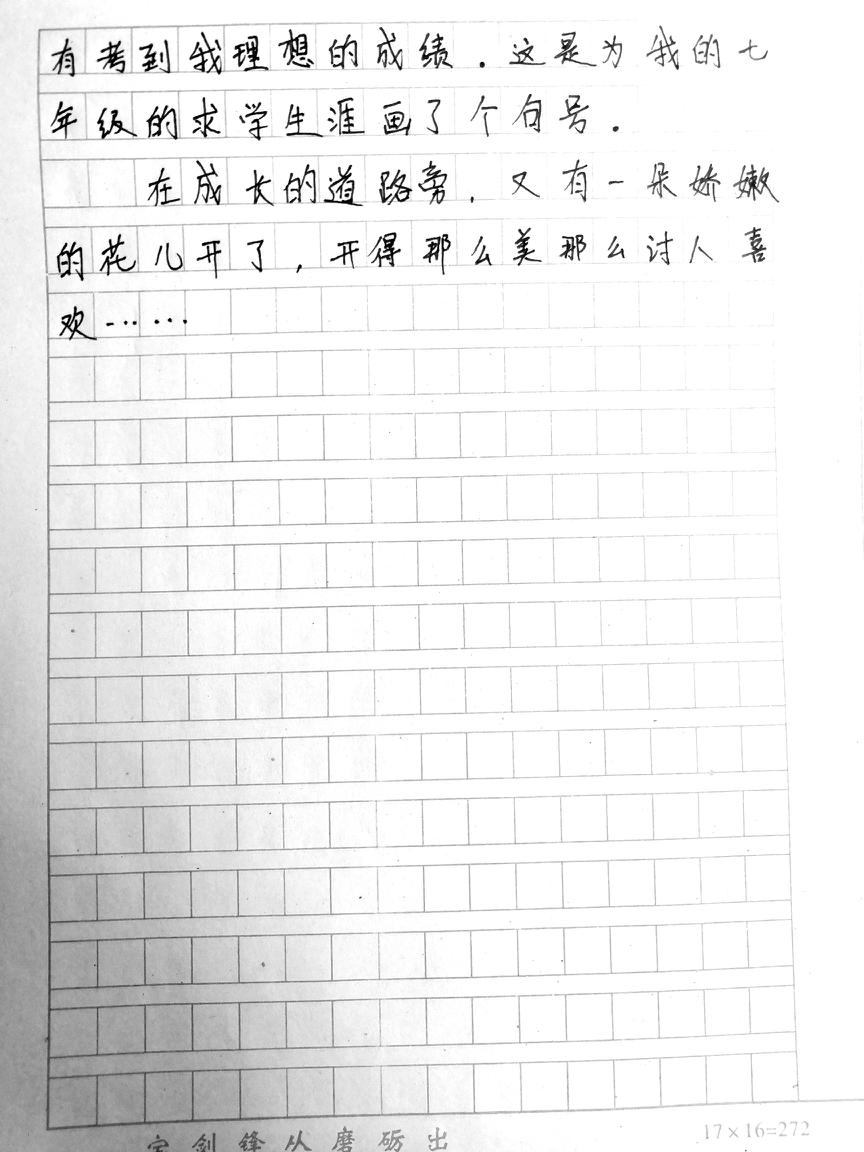 有考到我理想的成绩．这是为我的七
年级的求学生涯画了个句号．
在成长的道路旁，又有一朵娇嫩
的花儿开了，开得那么美那么讨人喜
欢……
宝剑锋从磨砺出
17×16=272